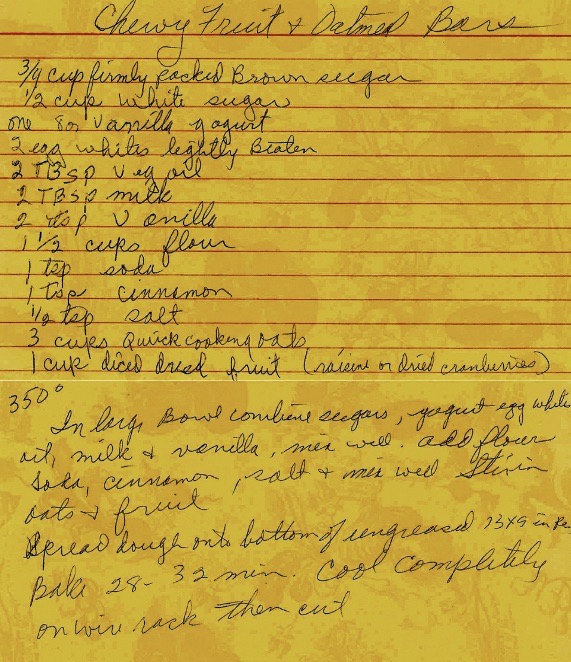 Chewy Fruit & Oatmeal Bars
3/4 cup firmly packed Brown sugar
1/2 cup white sugar
one 8oz vanilla yogurt
2 egg whites lightly Beaten
2 TBSP veg oil
2 TBSP milk
2 tsp vanilla
1 1/2 cups flour
1 tsp soda
1 Tsp cinnamon
1/2 tsp salt
3 cups quick cooking oats
1 cup diced dried fruit (raisins or dried cranberries)
350°
In large Bowl combine sugars, yogurt egg whites
oil, milk & vanilla, mix well. add flour
soda, cinnamon, salt & mix well Stir in
oats & fruit
Spread dough onto bottom of ungreased 13x9 in
Bake 28-32 min. Cool completely
on wire rack then cut